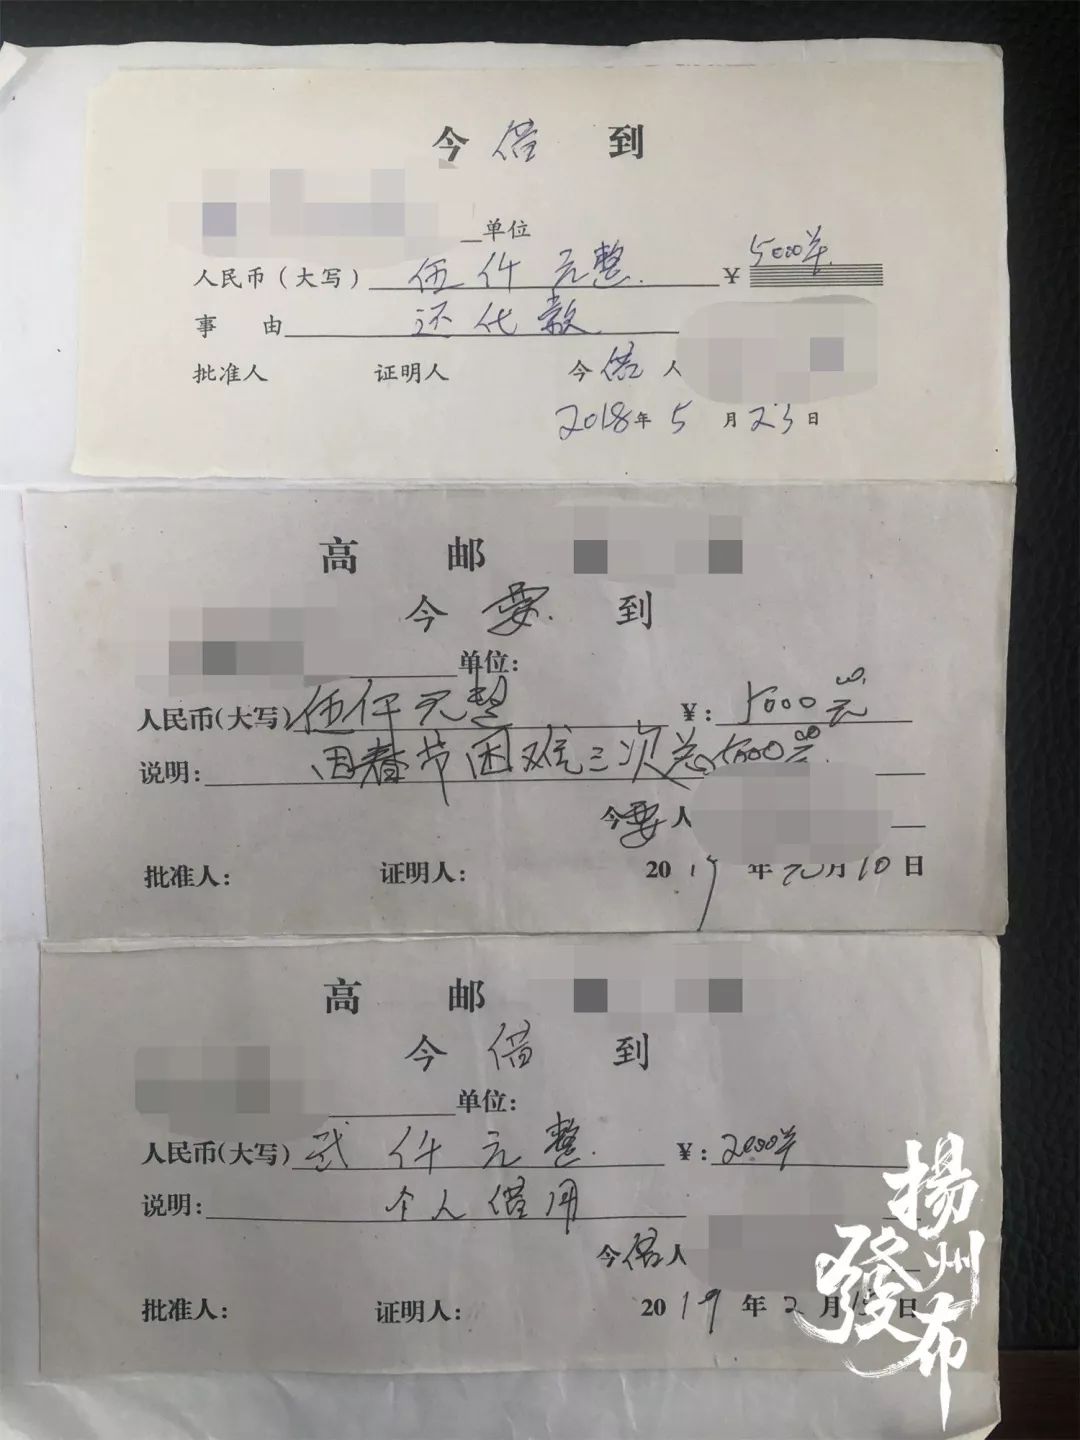 今借到
单位
人民币（大写）伍仟元整. ¥ 5000羊.
事 由 还代款
批准人 证明人 今借人
2018年5月23日
高 邮
今要到
单位:
人民币(大写) 伍仟元整 ¥: 5000元
说明: 因春节困难三次总5000元
今要人
批准人: 证明人: 2019年元月10日
高 邮
今借到
单位:
人民币(大写) 贰仟元整. ¥: 2000羊
说明: 个人借用
今借人
批准人: 证明人: 2019年2月15日
揚州
發布